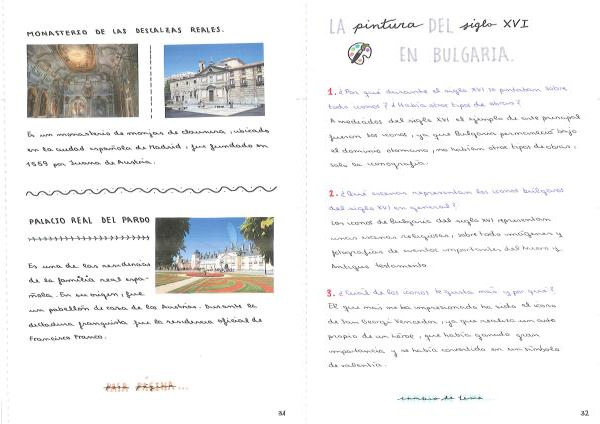 MONASTERIO DE LAS DESCALZAS REALES.
Es un monasterio de monjas de clausura, ubicado
en la ciudad española de Madrid, fue fundado en
1559 por Juana de Austria.
PALACIO REAL DEL PARDO
Es una de las residencias
de la familia real espa-
ñola. En su origen, fue
un pabellón de casa de los Austrias. Durante la
dictadura franquista fue la residencia oficial de
Francisco Franco.
PASA PÁGINA...
31
LA pintura DEL siglo XVI
EN BULGARIA.
1. ¿Por qué durante el siglo XVI se pintaban sobre
todo iconos? ¿Había otros tipos de obras?
A mediados del siglo XVI el ejemplo de arte principal
fueron los iconos, ya que Bulgaria permaneció bajo
el dominio otomano, no habían otros tipos de obras,
solo la iconografía.
2. ¿Qué escenas representan los iconos búlgaros
del siglo XVI en general?
Los iconos de Bulgaria del siglo XVI representan
unas escenas religiosas, sobre todo imágenes y
fotografías de eventos importantes del Nuevo y
Antiguo testamento.
3. ¿Cuál de los iconos te gusta más y por qué?
El que más me ha impresionado ha sido el icono
de San Georgi Vencedor, ya que realiza un acto
propio de un héroe, que había ganado gran
importancia y se había convertido en un símbolo
de valentía.
cambio de tema
32